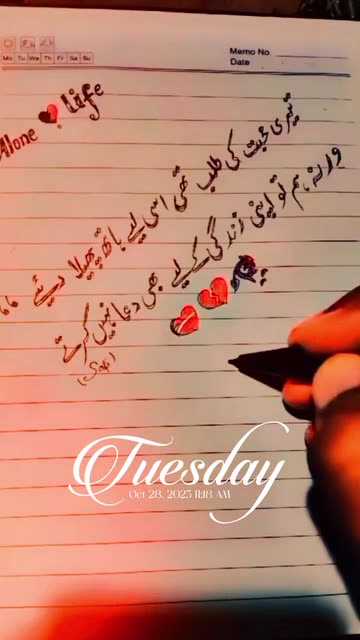 Memo No
Date
Mo Tu We Th Fr Sa Su
Alone Life
تیری محبت کی طلب تھی اسی لیے ہاتھ پھیلا دیئے
ورنہ ہم تو اپنی زندگی کے لیے بھی دعا نہیں کرتے
Tuesday
Oct 28, 2025 11:18 AM